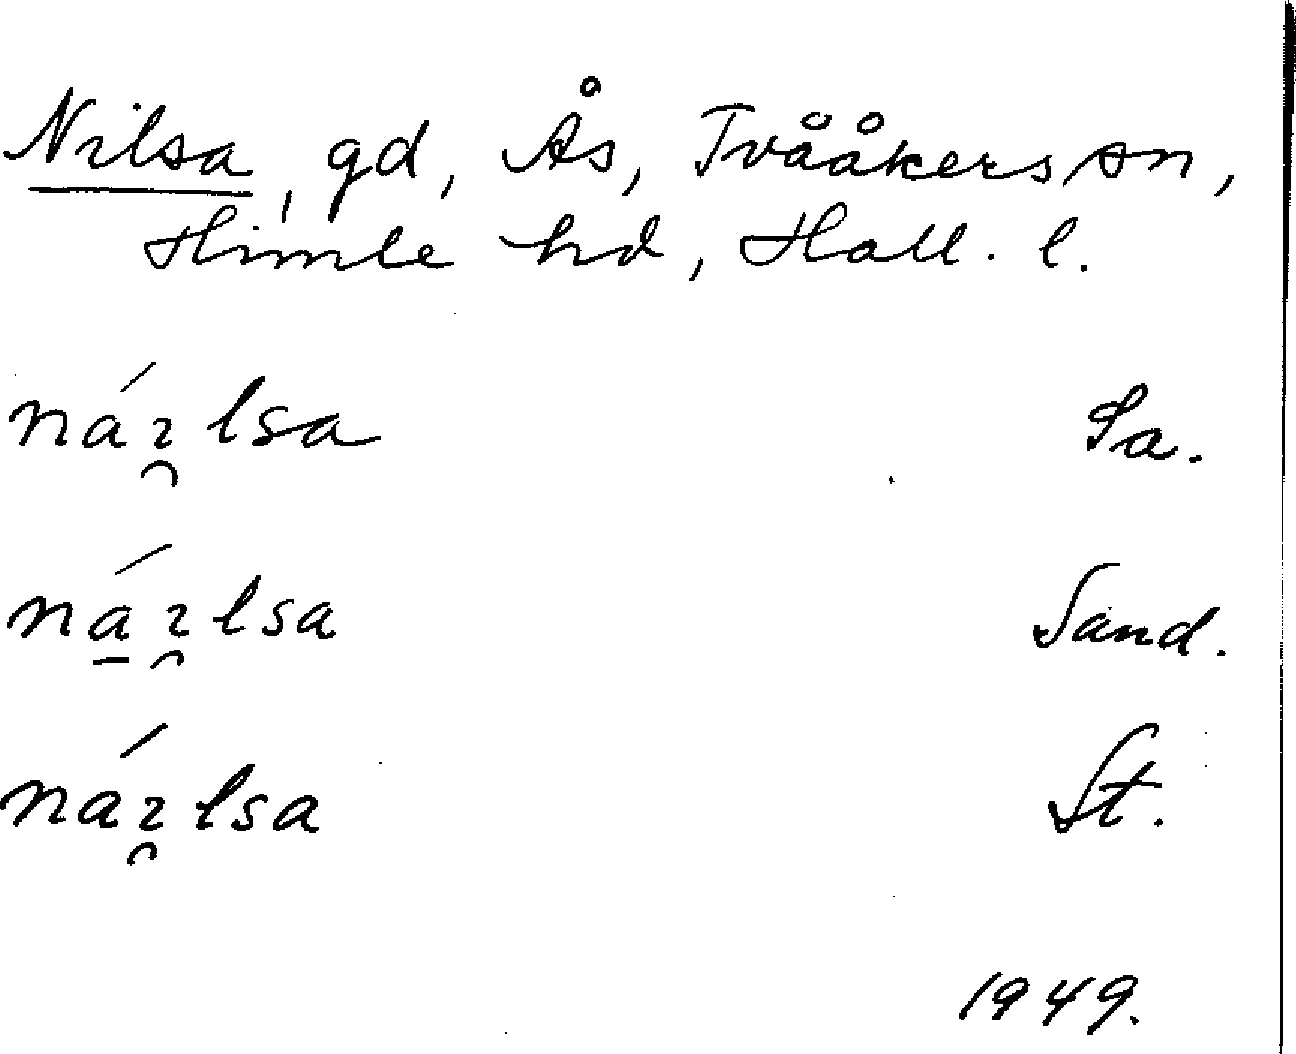 Nilsa, gd, Ås, Tvååkers sn,
Himle hd, Hall. l.
náı̯lsa Sa.
ná̱ı̯lsa Sand.
náı̯lsa St.
1949.